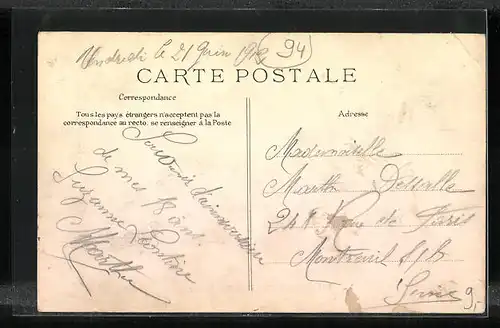 Vendredi le 21 Juin 1912 94
CARTE POSTALE
Correspondance
Tous les pays étrangers n'acceptent pas la
correspondance au recto, se renseigner à la Poste
Souvenir d'anniversaire
de mes 18 ans
Suzanne Léontine
Marthe
Adresse
Mademoiselle
Marthe
241 Rue de Paris
Montreuil S/B
Seine
9,-